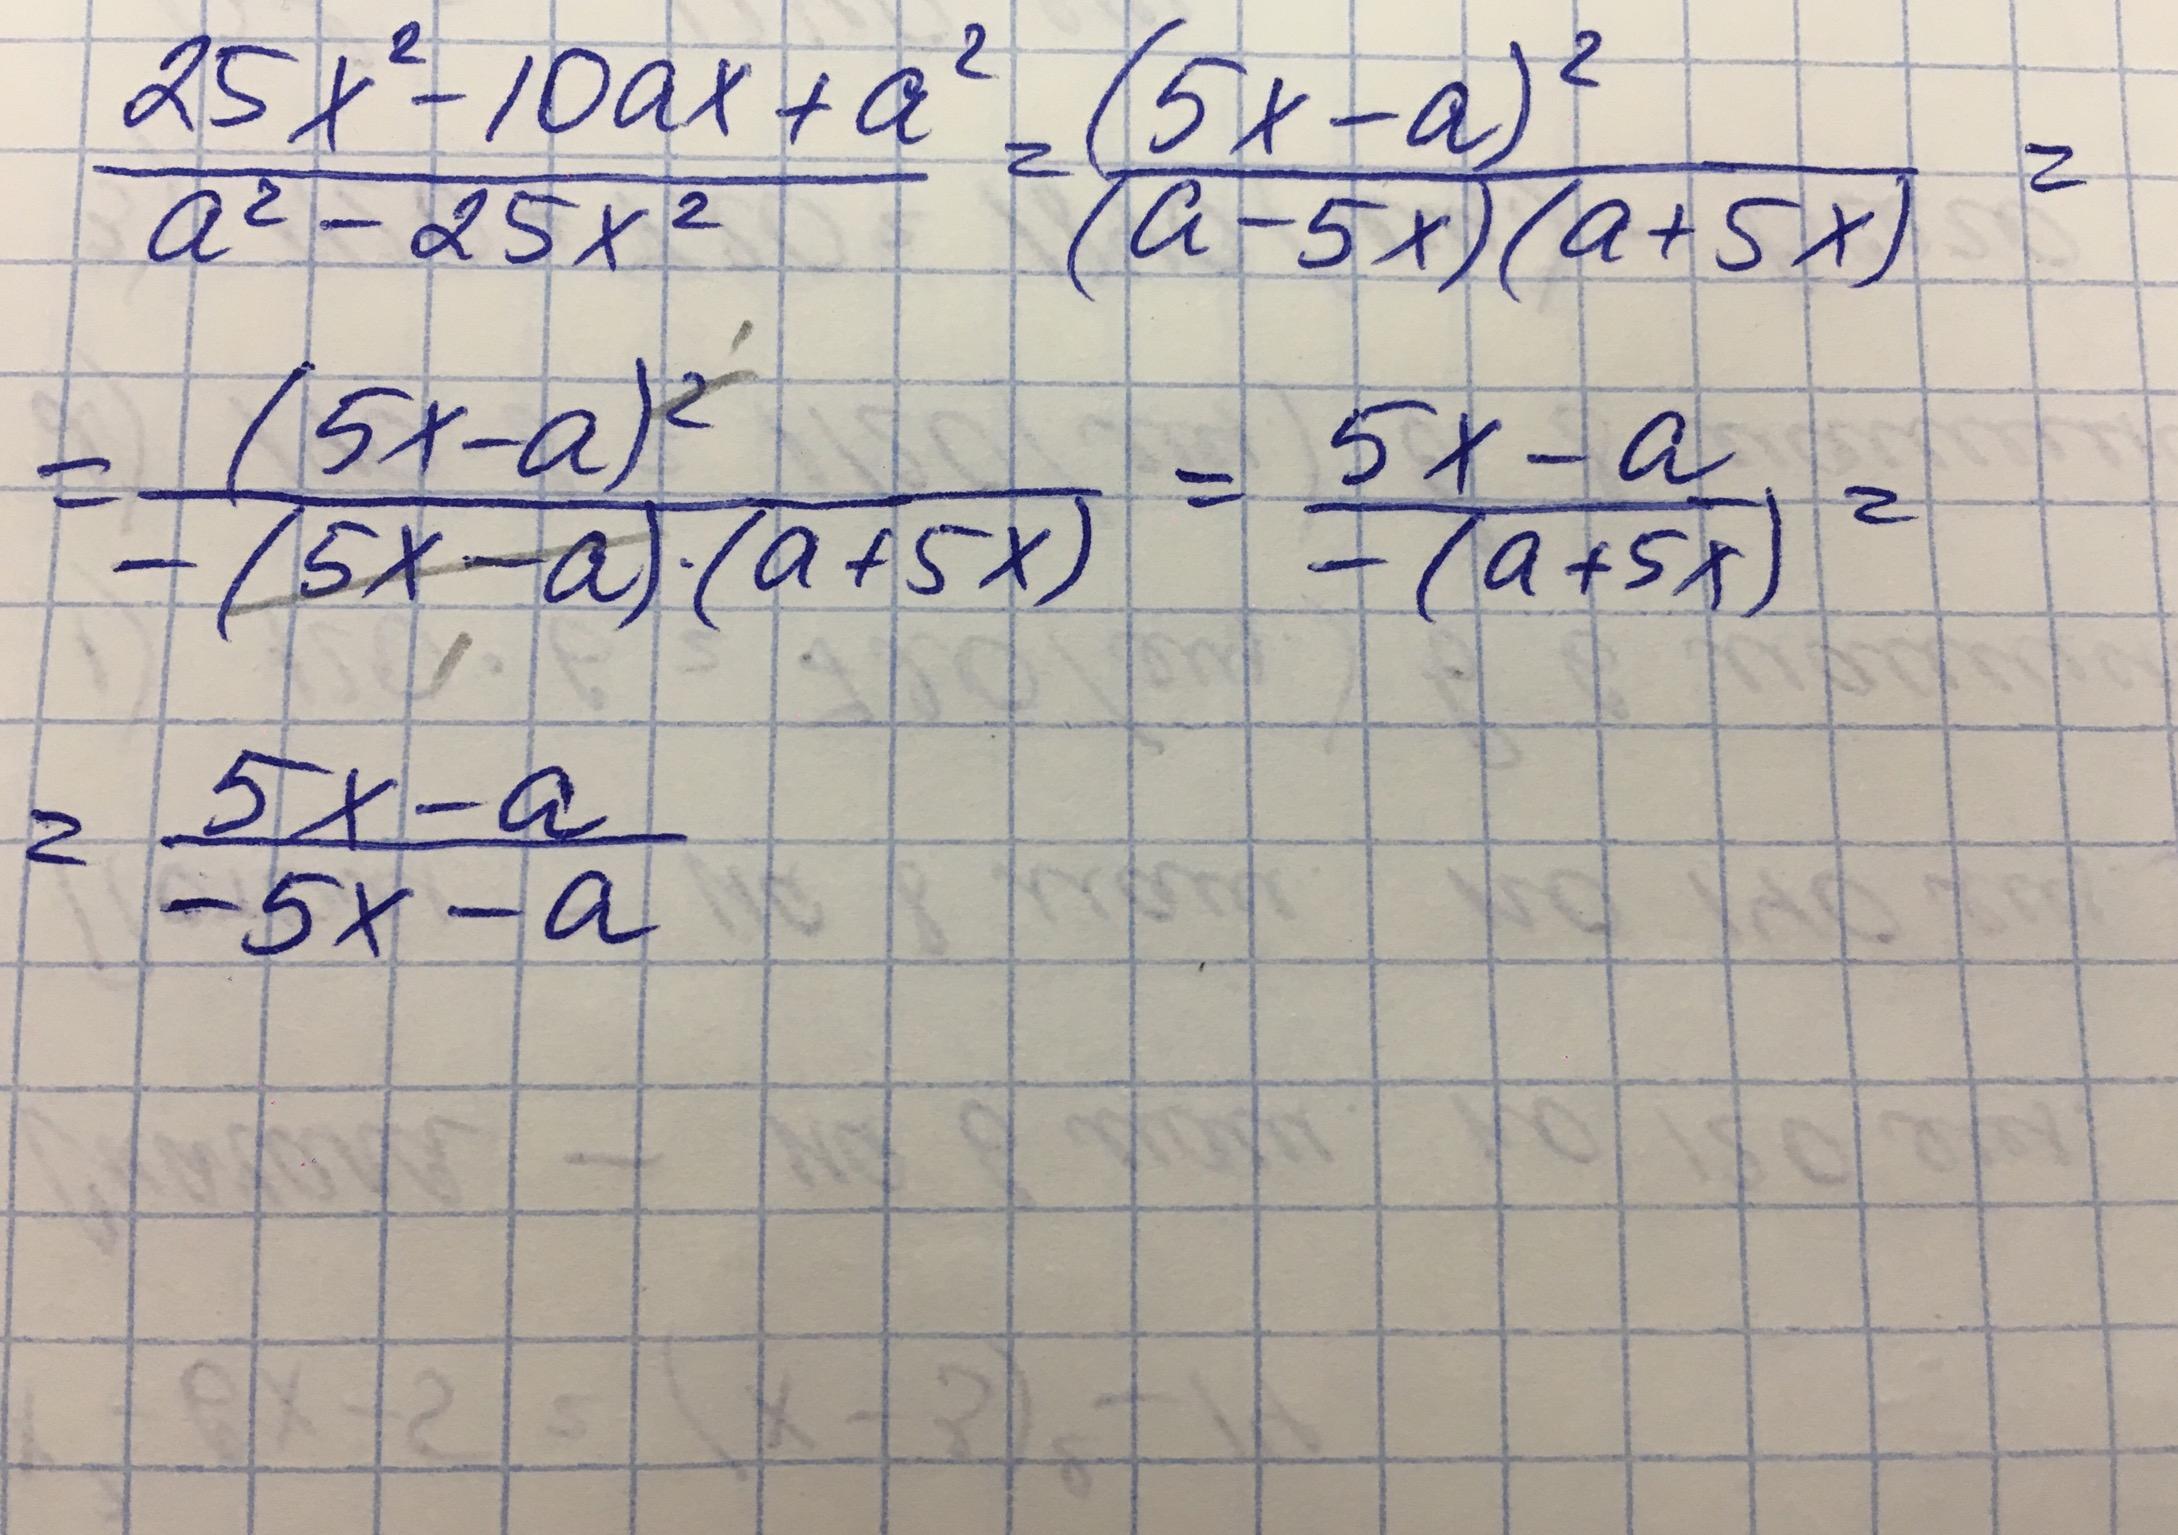 (25x² - 10ax + a²)/(a² - 25x²) = (5x - a)²/((a - 5x)(a + 5x)) =
= (5x - a)²/(-(5x - a)·(a + 5x)) = (5x - a)/(-(a + 5x)) =
= (5x - a)/(-5x - a)